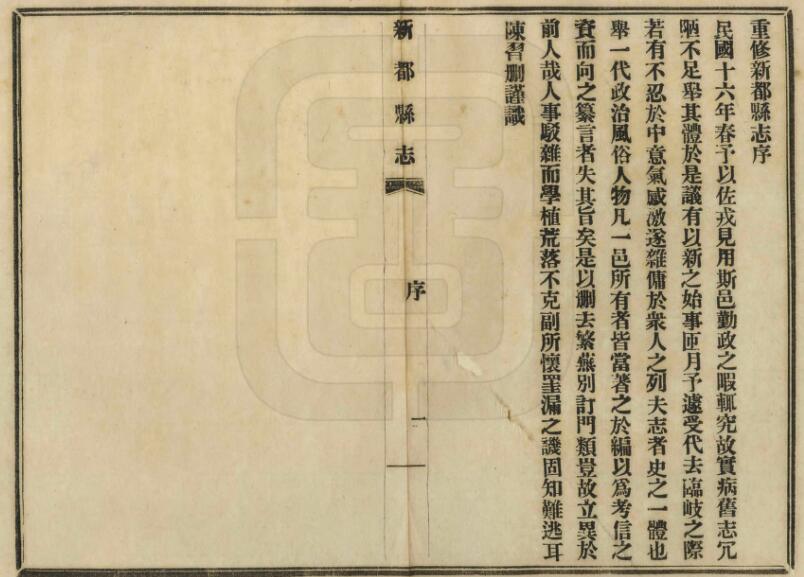 重修新都縣志序
民國十六年春予以佐戎見用斯邑勤政之暇輒究故實病舊志冗
陋不足舉其體於是議有以新之始事匝月予遽受代去臨岐之際
若有不忍於中意氣感激遂雜傭於衆人之列夫志者史之一體也
舉一代政治風俗人物凡一邑所有者皆當著之於編以爲考信之
資而向之纂言者失其旨矣是以刪去繁蕪別訂門類豈故立異於
前人哉人事駁雜而學植荒落不克副所懷罣漏之譏固知難逃耳
陳習刪謹識
新都縣志
序
一